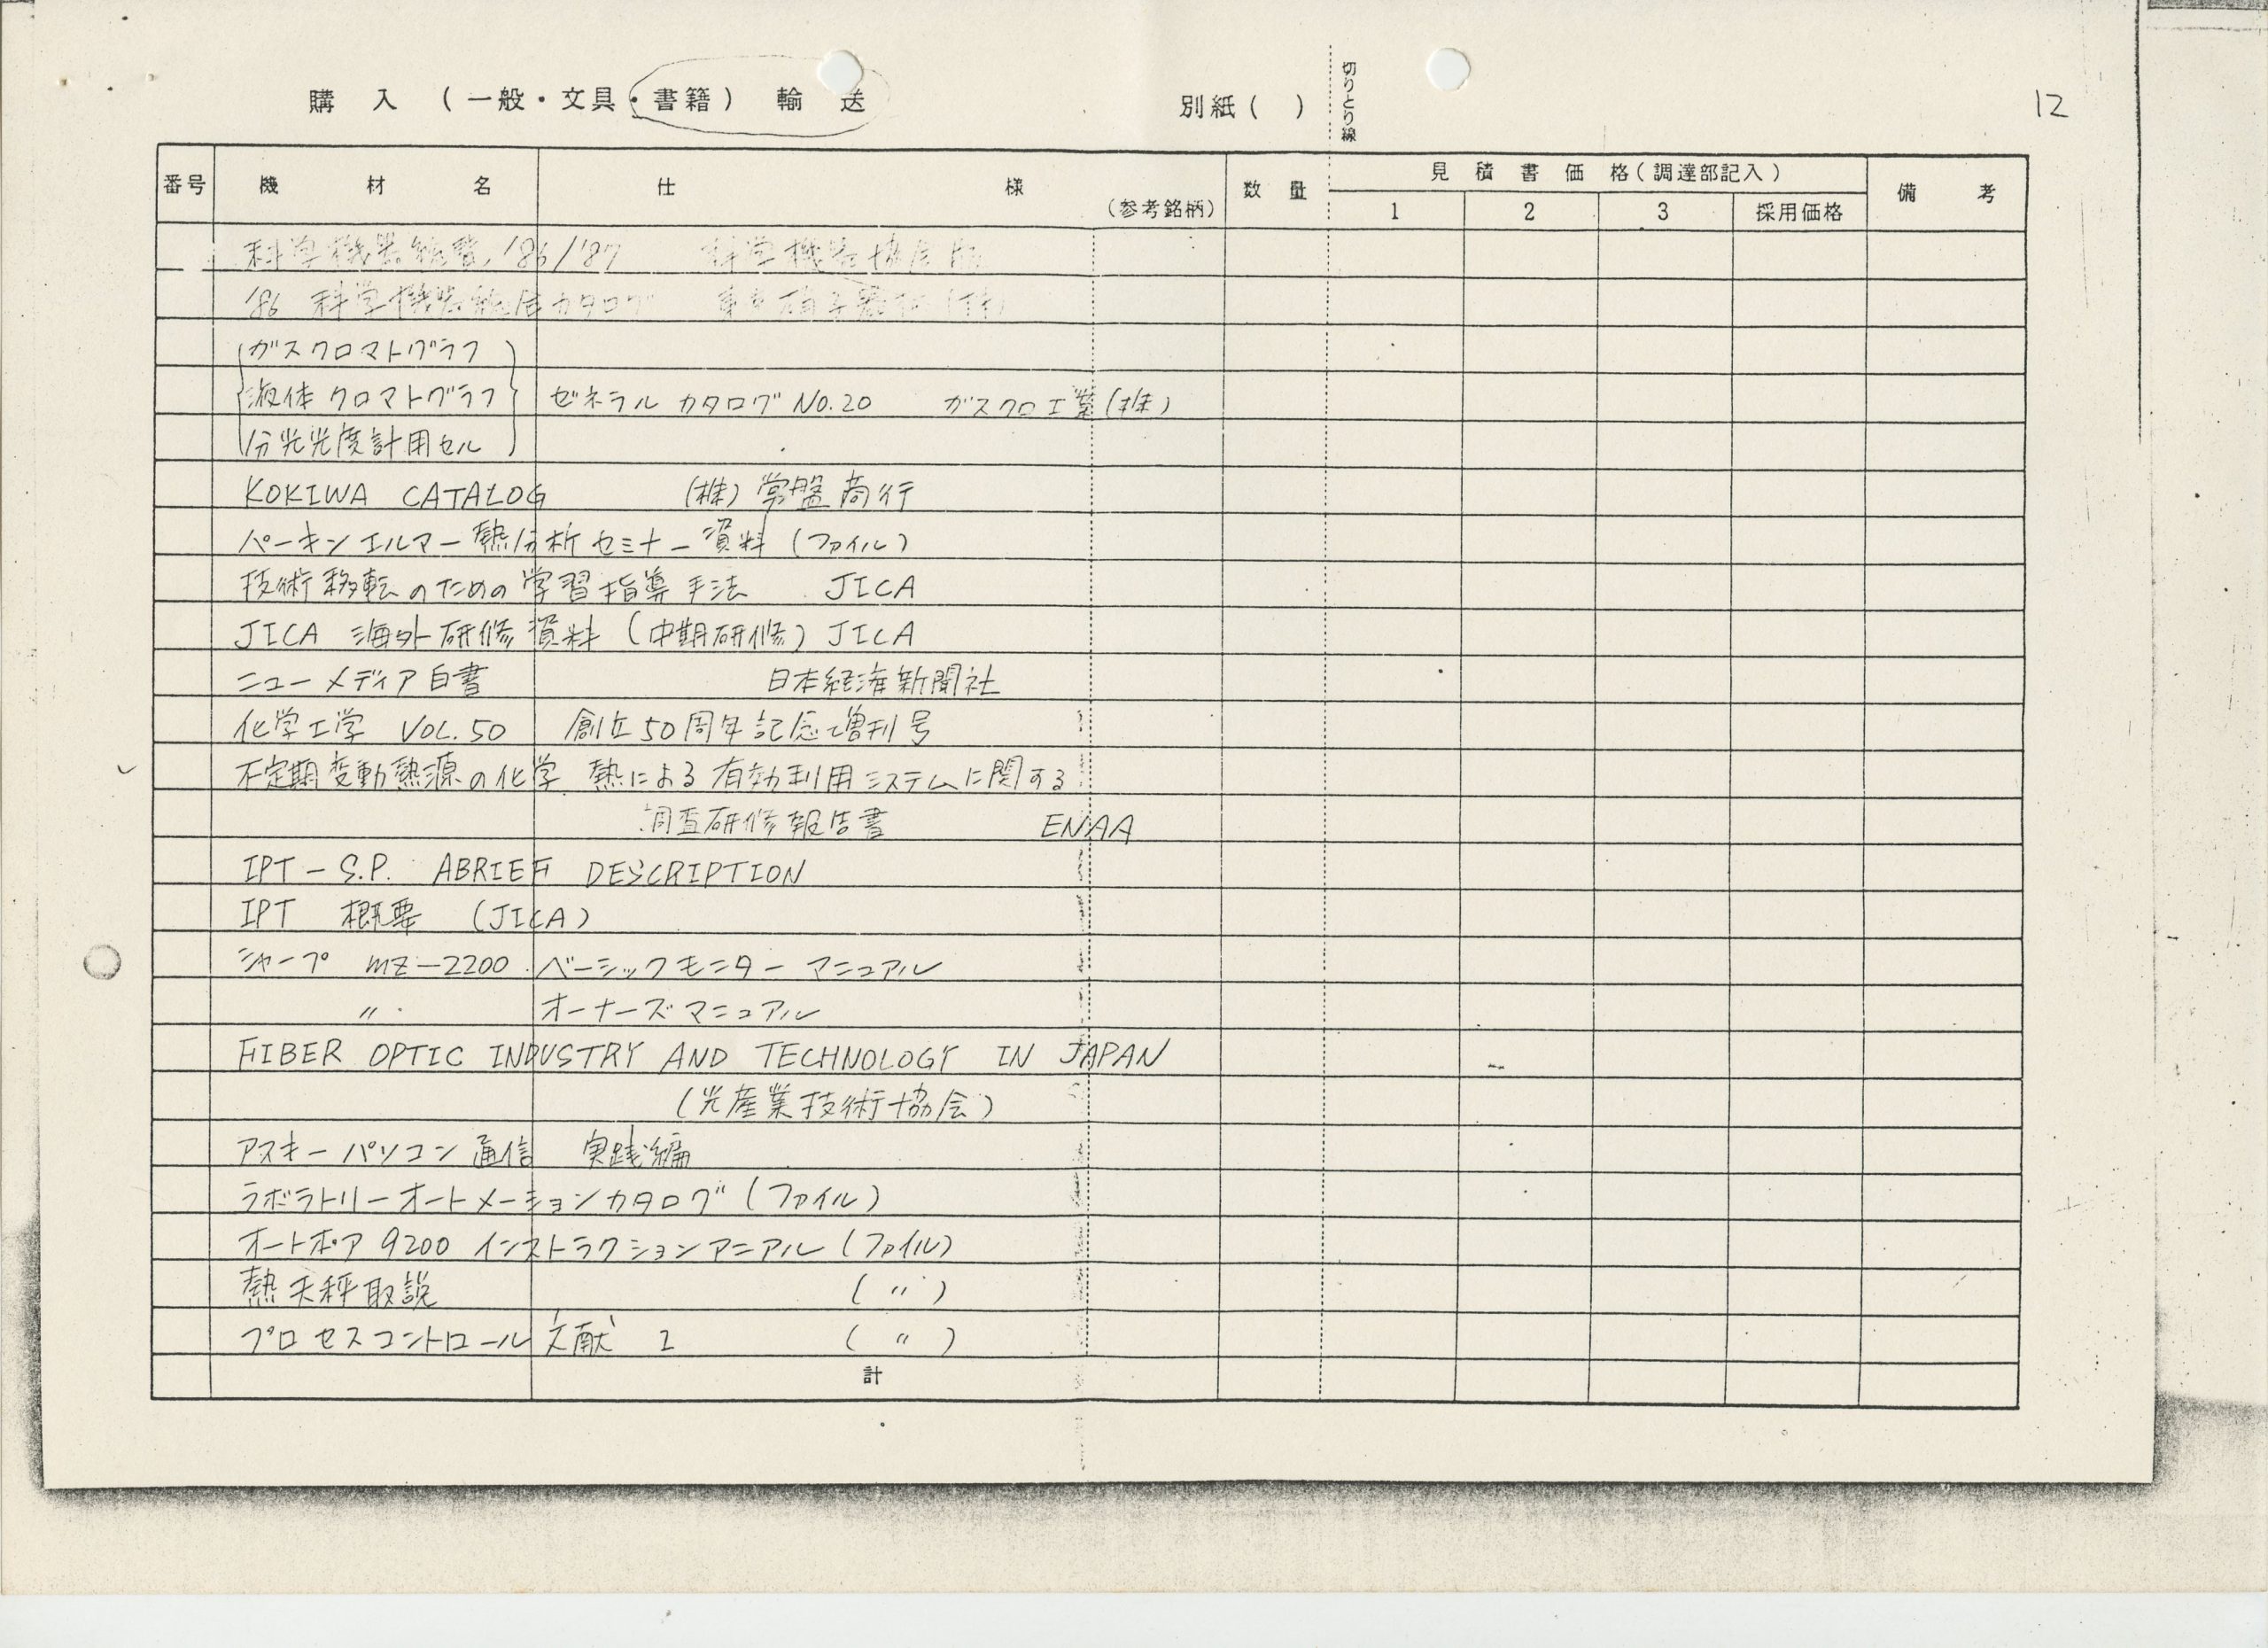 購入（一般・文具・書籍）輸送
別紙（　）
切りとり線
12
番号 機材名 仕様 （参考銘柄） 数量 見積書価格（調達部記入） 備考
1 2 3 採用価格
科学機器総覧 '86/'87 科学機器協会版
'86 科学機器総合カタログ (株)
ガスクロマトグラフ
液体クロマトグラフ ゼネラルカタログ No.20 ガスクロ工業(株)
分光光度計用セル
KOKIWA CATALOG (株)常盤商行
パーキンエルマー熱分析セミナー資料(ファイル)
技術移転のための学習指導手法 JICA
JICA 海外研修資料(中期研修) JICA
ニューメディア白書 日本経済新聞社
化学工学 VOL.50 創立50周年記念増刊号
不定期変動熱源の化学熱による有効利用システムに関する
調査研修報告書 ENAA
IPT-S.P. ABRIEF DESCRIPTION
IPT 概要 (JICA)
シャープ MZ-2200 ベーシックモニターマニュアル
〃 オーナーズマニュアル
FIBER OPTIC INDUSTRY AND TECHNOLOGY IN JAPAN
(光産業技術協会)
アスキーパソコン通信 実践編
ラボラトリーオートメーションカタログ(ファイル)
オートポア9200インストラクションアニアル(ファイル)
熱天秤取説 (〃)
プロセスコントロール文献 1 (〃)
計